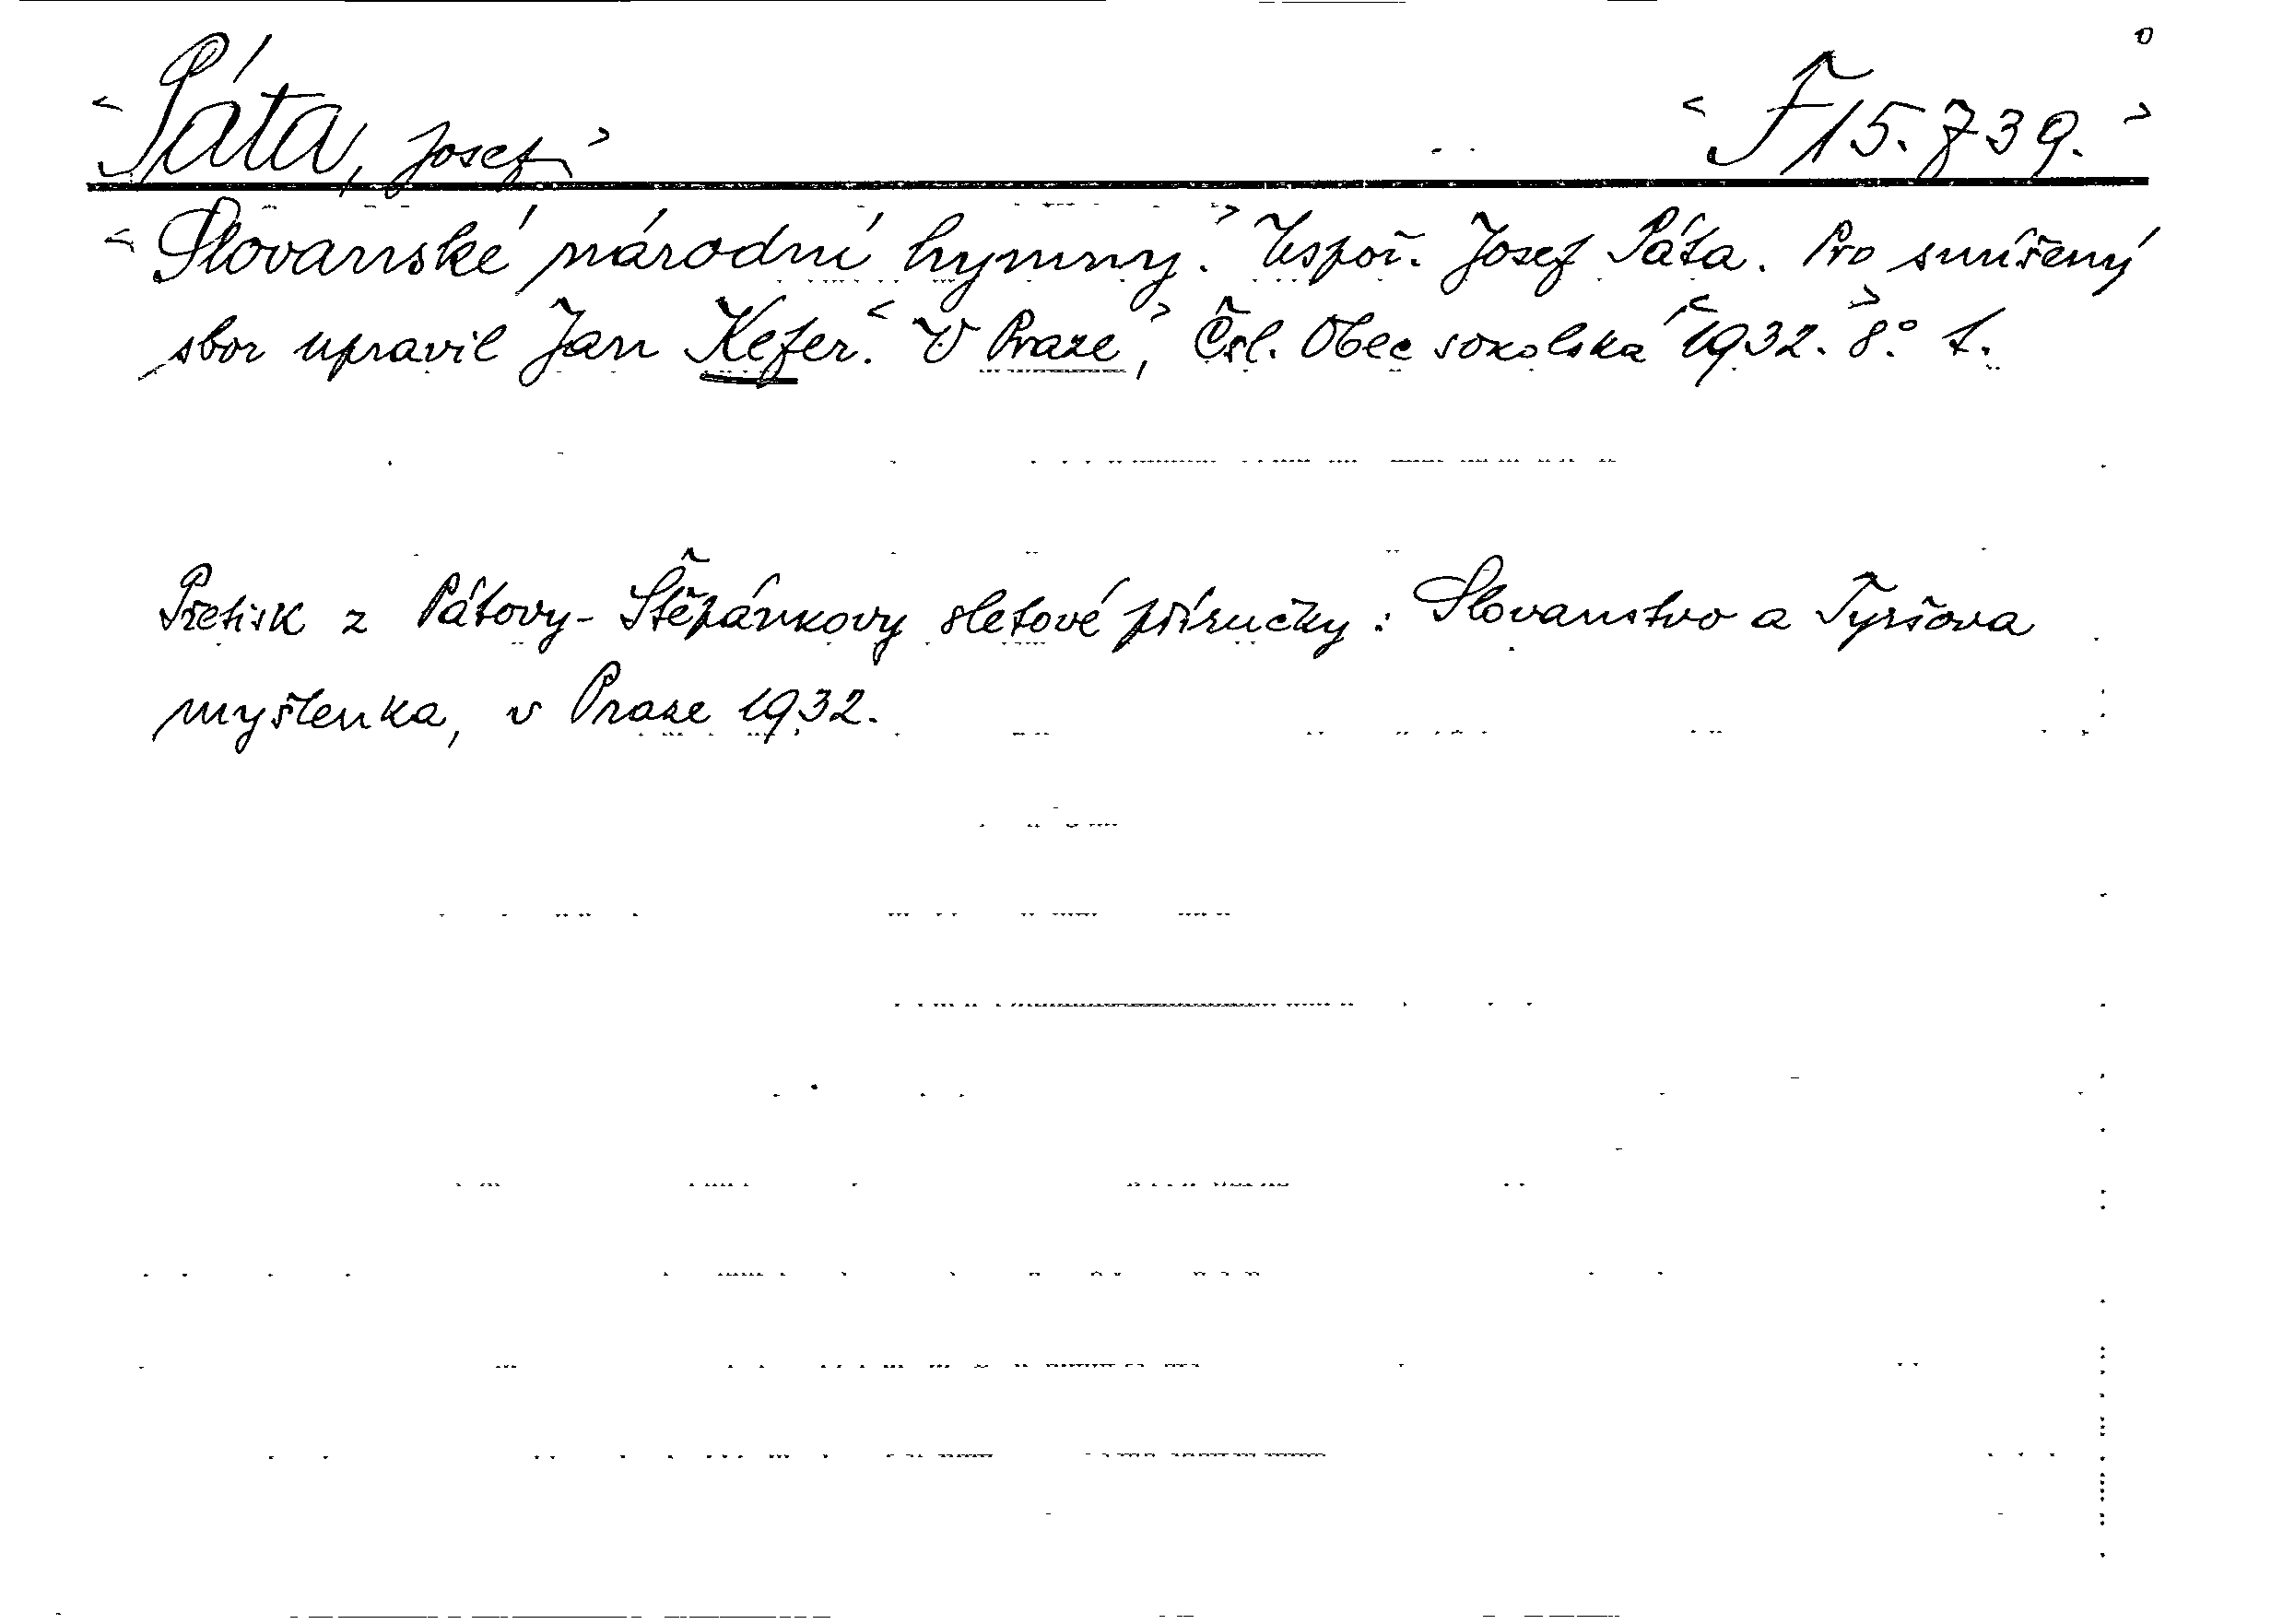 Páta, Josef F 15.739.
Slovanské národní hymny. Uspoř. Josef Páta. Pro smíšený
sbor upravil Jan Kefer. V Praze, Čsl. Obec sokolská 1932. 8.° 1.
Přetisk z Pátovy-Štěpánkovy sletové příručky: Slovanstvo a Tyršova
myšlenka, v Praze 1932.